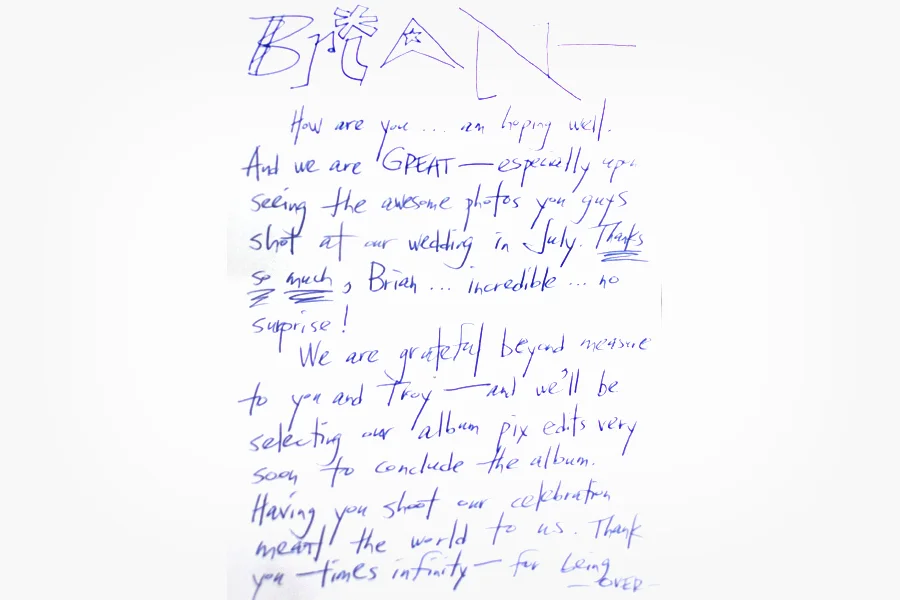 BRIAN —
How are you ... am hoping well.
And we are GREAT — especially upon
seeing the awesome photos you guys
shot at our wedding in July. Thanks
so much, Brian ... incredible ... no
surprise!
We are grateful beyond measure
to you and Troy — and we'll be
selecting our album pix edits very
soon to conclude the album.
Having you shoot our celebration
meant the world to us. Thank
you — times infinity — for being
— OVER —